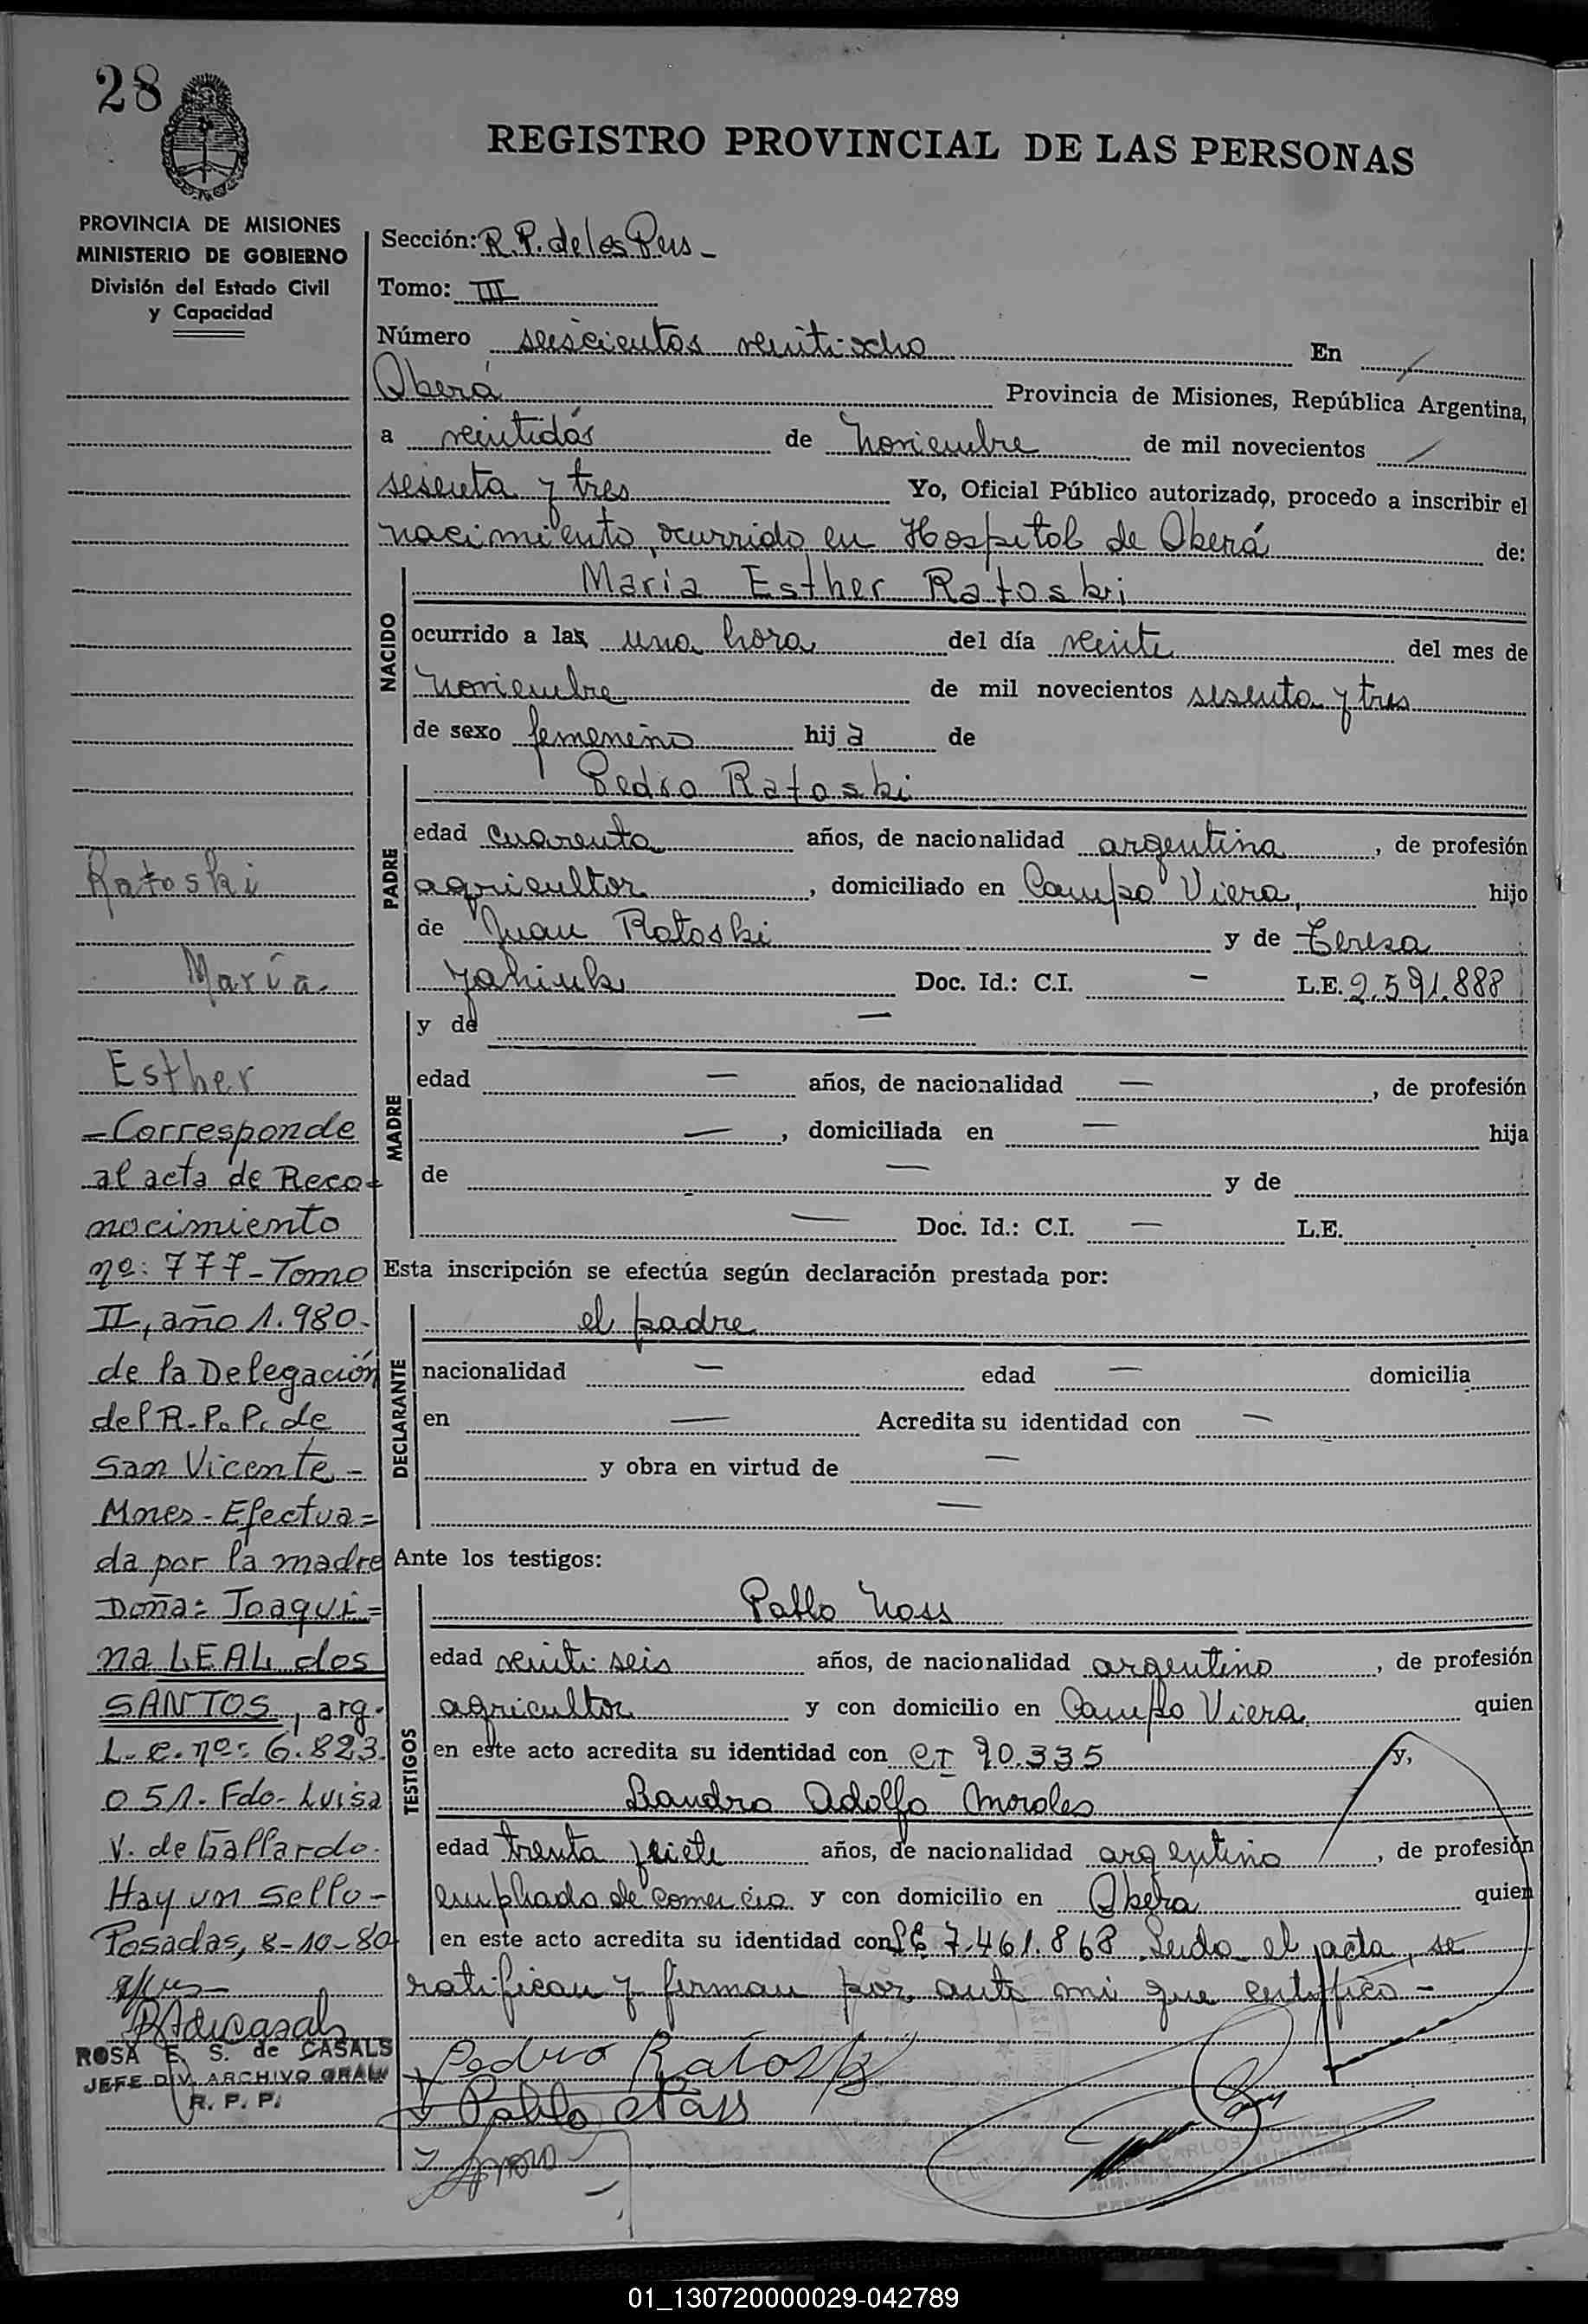 28
REGISTRO PROVINCIAL DE LAS PERSONAS
PROVINCIA DE MISIONES
MINISTERIO DE GOBIERNO
División del Estado Civil
y Capacidad
Sección: R. P. de las Pers -
Tomo: III
Número seiscientos veintiocho En /
Oberá Provincia de Misiones, República Argentina,
a veintidós de Noviembre de mil novecientos /
sesenta y tres Yo, Oficial Público autorizado, procedo a inscribir el
nacimiento, ocurrido en Hospital de Oberá de:
NACIDO
Maria Esther Ratoski
ocurrido a las una hora del día veinte del mes de
Noviembre de mil novecientos sesenta y tres
de sexo femenino hija de
PADRE
Pedro Ratoski
edad cuarenta años, de nacionalidad argentina, de profesión
agricultor, domiciliado en Campo Viera, hijo
de Juan Ratoski y de Teresa
Doc. Id.: C.I. - L.E. 2.591.888
MADRE
y de —
edad — años, de nacionalidad —, de profesión
—, domiciliada en — hija
de — y de
— Doc. Id.: C.I. — L.E.
Esta inscripción se efectúa según declaración prestada por:
DECLARANTE
el padre
nacionalidad — edad — domicilia
en — Acredita su identidad con —
y obra en virtud de —
—
Ante los testigos:
TESTIGOS
Pablo Noss
edad veintiseis años, de nacionalidad argentino, de profesión
agricultor y con domicilio en Campo Viera, quien
en este acto acredita su identidad con CI 90.335 y,
Leandro Adolfo Morales
edad trenta siete años, de nacionalidad argentino, de profesión
empleado de comercio y con domicilio en Oberá quien
en este acto acredita su identidad con LE 7.461.868 Leida el acta, se
ratifican y firman por ante mi que certifico -
Pedro Ratoski
Pablo Nass
CARLOS TORRES
Ratoski
María
Esther
- Corresponde
al acta de Reco-
nocimiento
nº: 777 - Tomo
II, año 1.980.
de la Delegación
del R. P. P. de
San Vicente -
Mnes - Efectua=
da por la madre
Doña: Joaqui=
na LEAL dos
SANTOS, arg.
L. C. nº: 6.823.
051. Fdo. Luisa
V. de Gallardo.
Hay un Sello -
Posadas, 8-10-80
ROSA E. S. de CASALS
JEFE DIV. ARCHIVO GRAL
R. P. P.
01_130720000029-042789